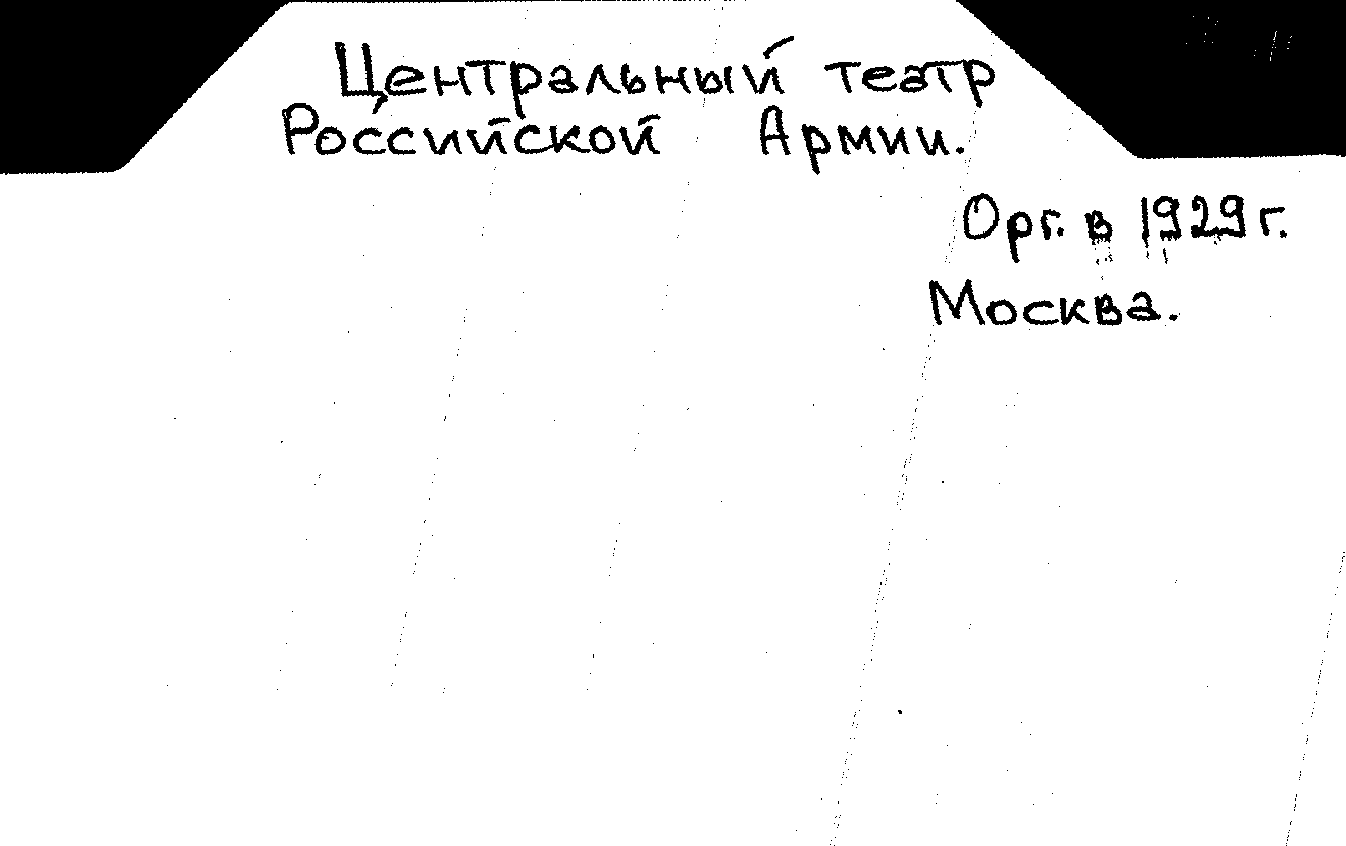 Центральный театр
Российской Армии.
Орг. в 1929 г.
Москва.